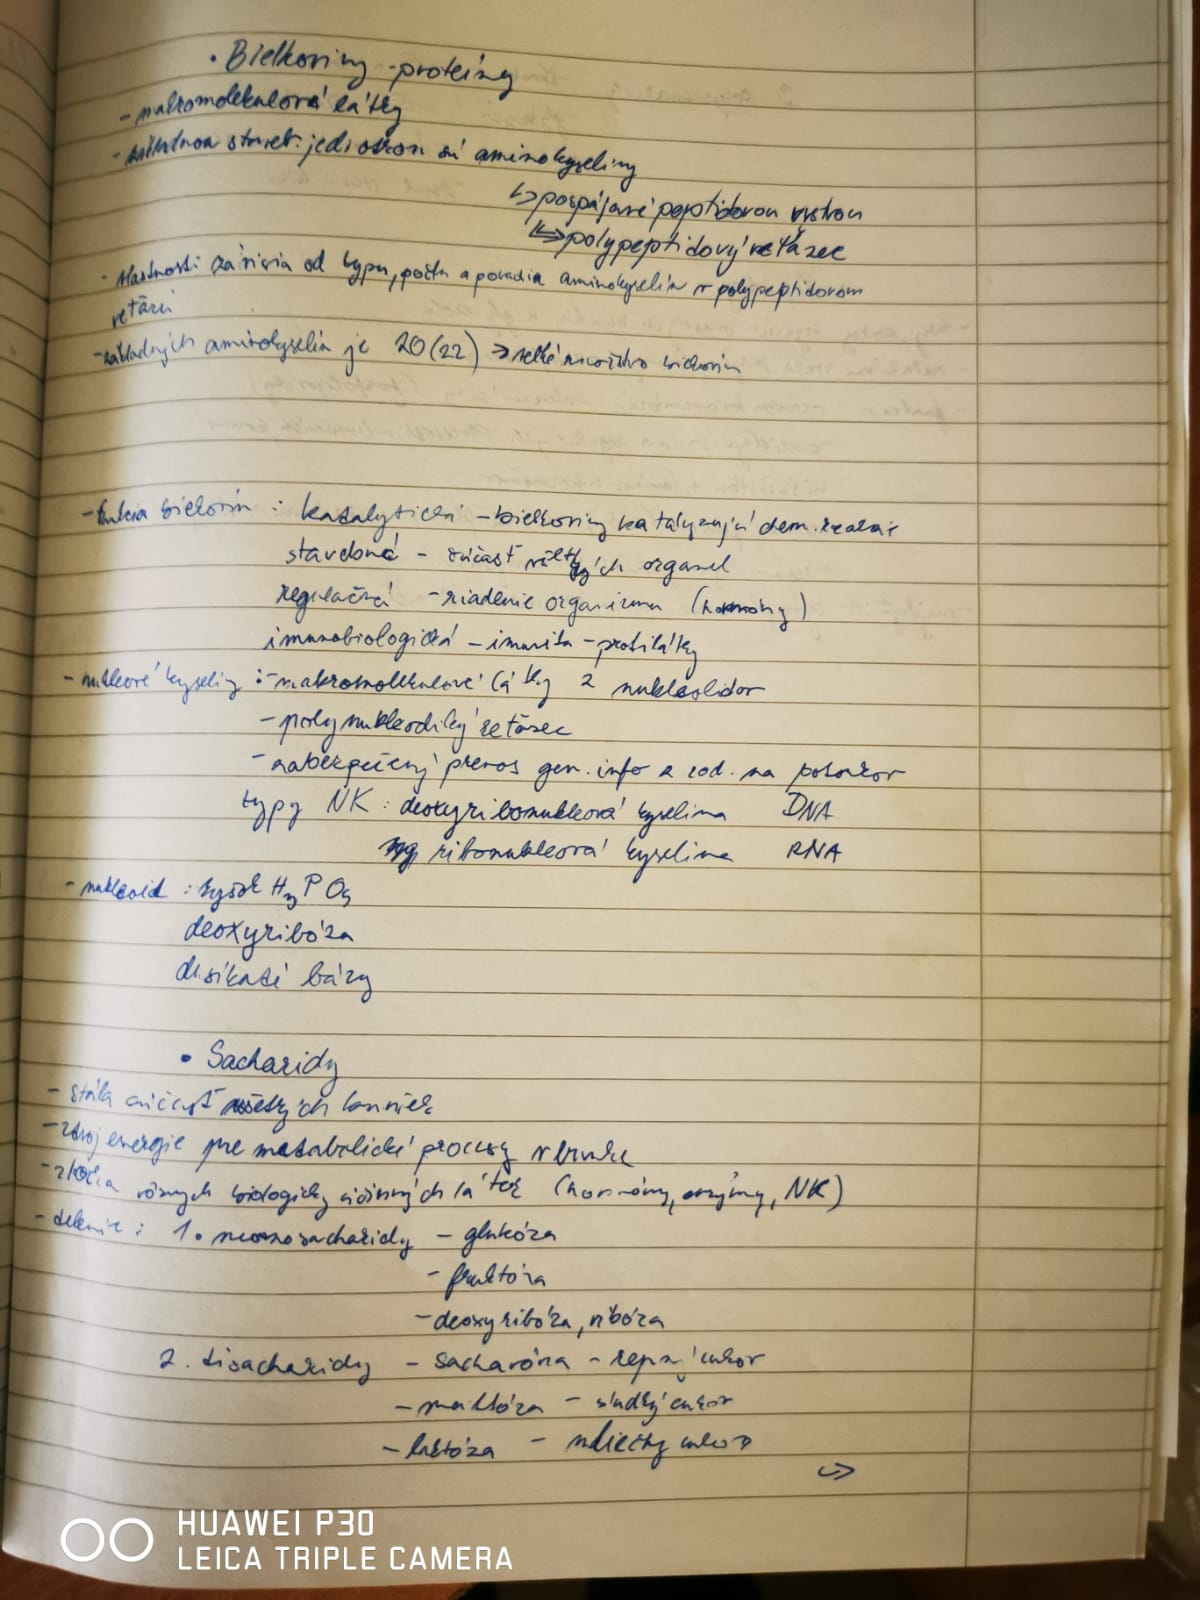 • Bielkoviny - proteíny
- makromolekulová látky
- základnou staveb. jednotkou sú aminokyseliny
↳ pospájané peptidovou
↳ polypeptidový reťazec
- vlastnosti závisia od typu, počtu a poradia aminokyselín v polypeptidovom
reťazci
- základných aminokyselín je 20 (22) → veľké množstvo bielkovín
- funkcia bielkovín : katalytická - bielkoviny katalyzujú chem. reakcie
stavebná - súčasť všetkých organel
regulačná - riadenie organizmu (hormóny)
imunobiologická - imunita - protilátky
- nukleové kyseliny : - makromolekulové látky z
- polynukleotidický reťazec
- zabezpečený prenos gen. info z rod. na potomkov
typy NK : deoxyribonukleová kyselina DNA
ribonukleová kyselina RNA
- : H3PO4
deoxyribóza
dusíkaté bázy
• Sacharidy
- stála súčasť všetkých buniek
- zdroj energie pre metabolické procesy v bunke
- zložka rôznych biologicky účinných látok (hormóny, enzýmy, NK)
- delenie : 1. monosacharidy - glukóza
- fruktóza
- deoxyribóza, ribóza
2. disacharidy - sacharóza - repný cukor
- maltóza - sladký cukor
- laktóza - mliečny cukor
↪
HUAWEI P30
LEICA TRIPLE CAMERA